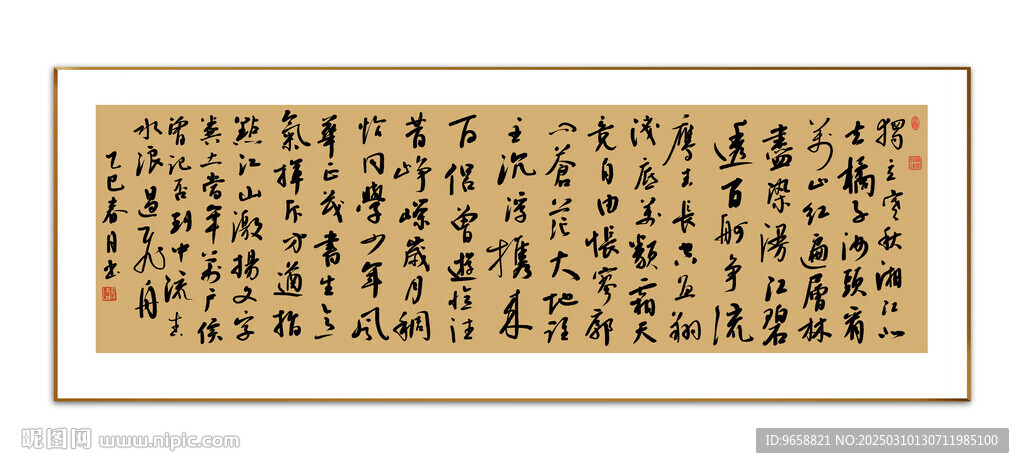 獨立寒秋湘江北
去橘子洲頭看
萬山红遍層林
盡染漫江碧
透百舸争流
鹰击長空鱼翔
淺底萬類霜天
竞自由悵寥廓
问蒼茫大地誰
主沉浮携来
百侣曾遊憶往
昔峥嵘歲月稠
恰同學少年风
華正茂書生意
氣揮斥方遒指
點江山激揚文字
糞土當年萬户侯
曾记否到中流击
水浪遏飞舟
乙巳春月书
昵图网 www.nipic.com
ID:9658821 NO:20250310130711985100